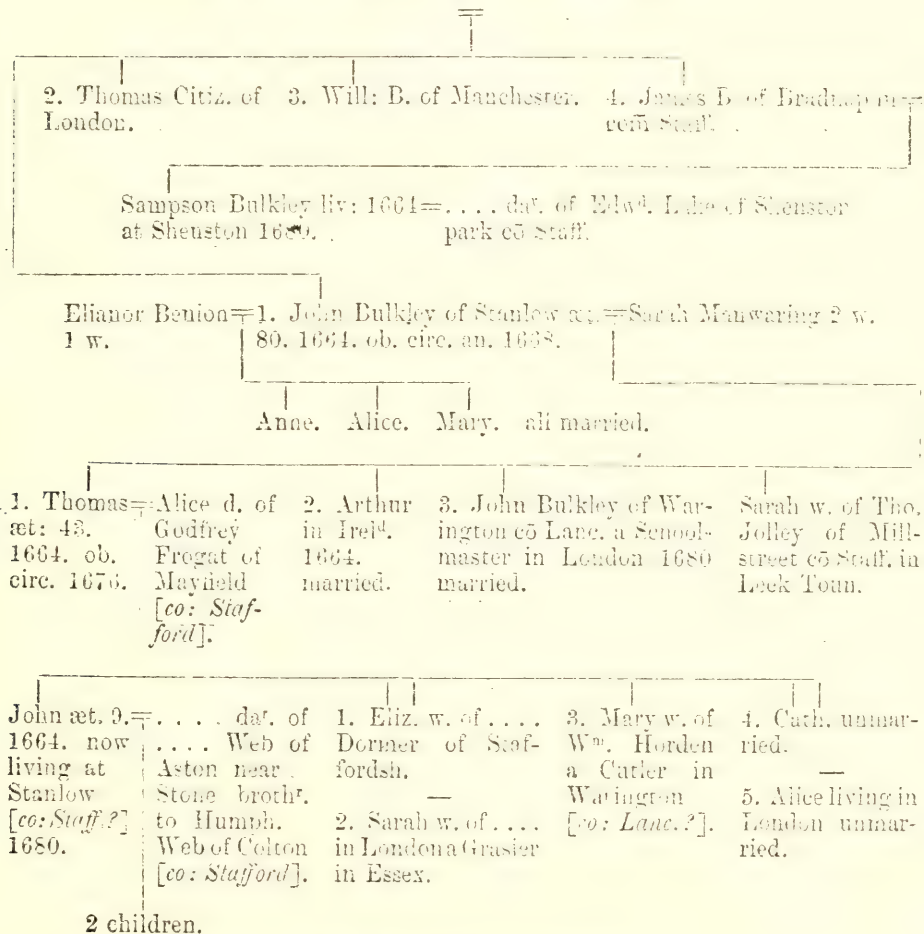 2. Thomas Citiz. of
London.
3. Will: B. of Manchester.
4. James B of Bradnap
com Staff.
Sampson Bulkley liv: 1664
at Shenston 1680.
.... daʳ. of Edwᵈ. Lake of Shenston
park cō Staff.
Elianor Benion
1 w.
1. John Bulkley of Stanlow æt.
80. 1664. ob. circ. an. 1668.
Sarah Manwaring 2 w.
Anne. Alice. Mary. all married.
1. Thomas
æt: 43.
1664. ob.
circ. 1676.
Alice d. of
Godfrey
Frogat of
Mayfield
[co: Staf-
ford].
2. Arthur
in Irelᵈ.
1664.
married.
3. John Bulkley of War-
ington cō Lanc. a School-
master in London 1680
married.
Sarah w. of Tho.
Jolley of Mill-
street cō Staff. in
Leek Toun.
John æt. 9.
1664. now
living at
Stanlow
[co: Staff.?]
1680.
.... daʳ. of
.... Web of
Aston near
Stone brothʳ.
to Humph.
Web of Colton
[co: Stafford].
1. Eliz. w. of ....
Dormer of Staf-
fordsh.
—
2. Sarah w. of ....
in London a Grasier
in Essex.
3. Mary w. of
Wᵐ. Horden
a Cutler in
Warington
[co: Lanc.?].
4. Cath. unmar-
ried.
—
5. Alice living in
London unmar-
ried.
2 children.